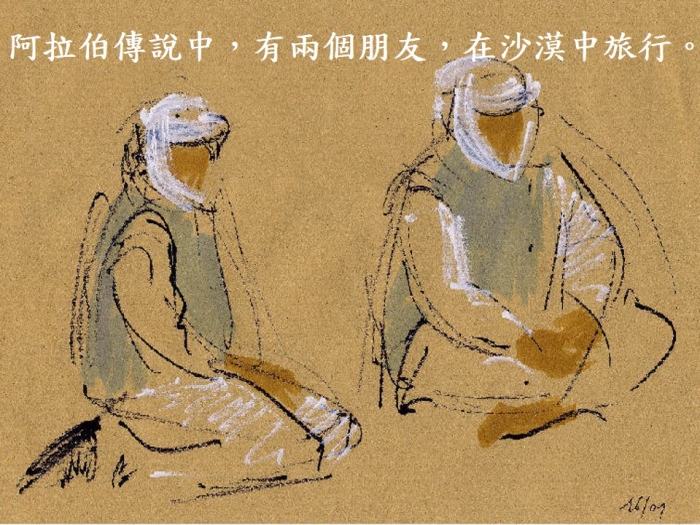 阿拉伯傳說中，有兩個朋友，在沙漠中旅行。